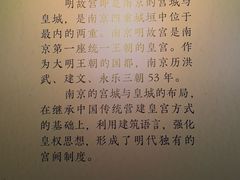 明故宫即是南京的宫城与
皇城，是南京四重城垣中位于
最内的两重。南京明故宫是南
京第一座统一王朝的皇宫。作
为大明王朝的国都，南京历洪
武、建文、永乐三朝 53 年。
南京的宫城与皇城的布局，
在继承中国传统营建皇宫方式
的基础上，利用建筑语言，强化
皇权思想，形成了明代独有的
宫阙制度。